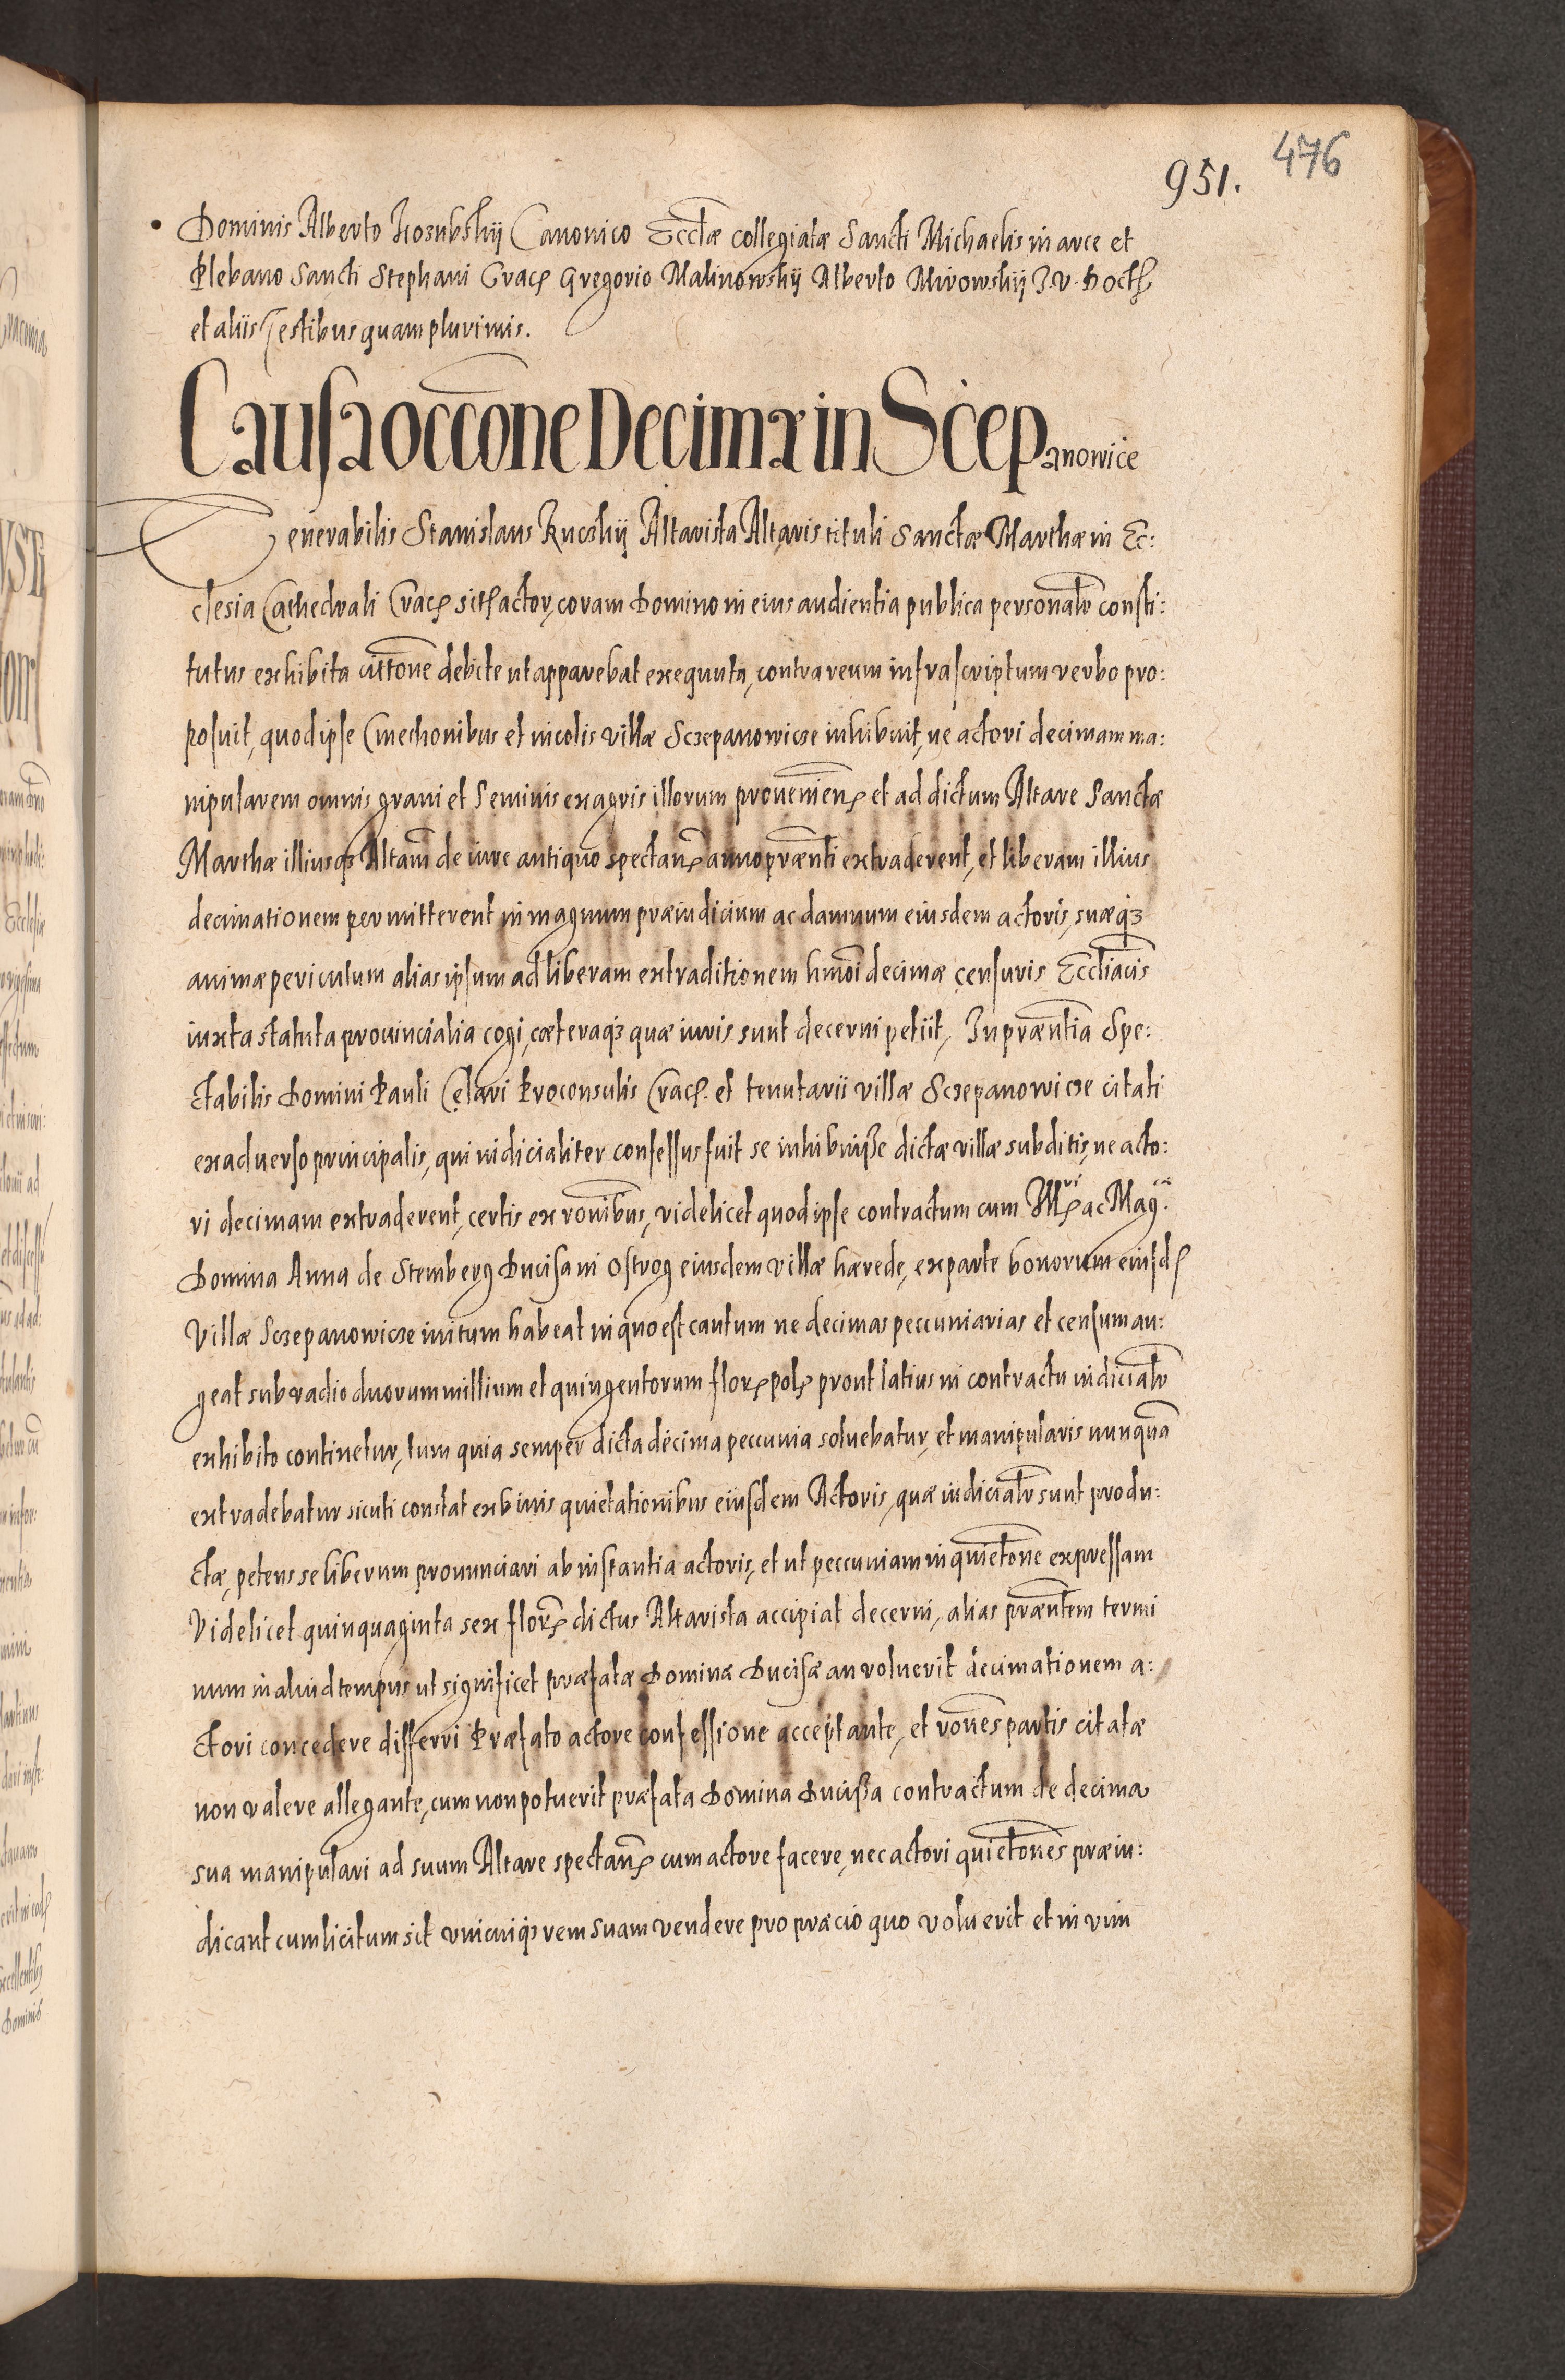 476
951.
Dominis Alberto Kozubskij Canonico Eccłæ collegiatæ Sancti Michaelis in arce et
Plebano Sancti Stephani Crac. Gregorio Malinowskij Alberto Mirowskij I. V. Doct.
et aliis Testibus quam plurimis.
Causa occone Decimæ in Scepanowice
Venerabilis Stanislaus Kuczkij Altarista Altaris tituli Sanctæ Marthæ in Ec:
clesia Cathedrali Crac. sit. actor, coram Domino in eius audientia publica personalr consti:
tutus exhibita cittone debite ut apparebat exequuta, contra reum infrascriptum verbo pro:
posuit, quod ipse Cmethonibus et incolis villæ Sczepanowicze inhibuit, ne actori decimam ma:
nipularem omnis grani et Seminis ex agris illorum prouenien. et ad dictum Altare Sanctæ
Marthæ illiusq3 Altam de iure antiquo spectan. anno prænti extraderent, et liberam illius
decimationem permitterent in magnum præiudicium ac damnum eiusdem actoris, suæq3
animæ periculum alias ipsum ad liberam extraditionem hmoi decimæ censuris Eccliacis
iuxta statuta prouincialia cogi, cæteraq3 quæ iuris sunt decerni petiit, In præntia Spe:
ctabilis Domini Pauli Celari Proconsulis Crac. et tenutarii villæ Sczepanowicze citati
ex aduerso principalis, qui iudicialiter confessus fuit se inhibuisse dictæ villæ subditis, ne acto:
ri decimam extraderent, certis ex ronibus, videlicet quod ipse contractum cum Illri ac Mag.ca
Domina Anna de Stemberg Ducissa in Ostrog eiusdem villæ hærede, ex parte bonorum eiusd.
Villæ Sczepanowicze initum habeat in quo est cautum ne decimas peccuniarias et censum au:
geat sub vadio duorum millium et quingentorum flor. pol. prout latius in contractu iudicialr
exhibito continetur, tum quia semper dicta decima peccunia soluebatur, et manipularis nunquā
extradebatur sicuti constat ex binis quietationibus eiusdem Actoris, quæ iudicialr sunt produ:
ctæ, petens se liberum pronunciari ab instantia actoris, et ut peccuniam in quietone expressam
Videlicet quinquaginta sex flor. dictus Altarista accipiat decerni, alias præntem termi
num in aliud tempus ut significet præfatæ Dominæ Ducissæ an voluerit decimationem a:
ctori concedere differri Præfato actore confessione acceptante, et rones partis citatæ
non valere allegante, cum non potuerit præfata Domina Ducissa contractum de decima
sua manipulari ad suum Altare spectan. cum actore facere, nec actori quietones præiu:
dicant cum licitum sit vnicuiq3 rem suam vendere pro præcio quo voluerit et in vim